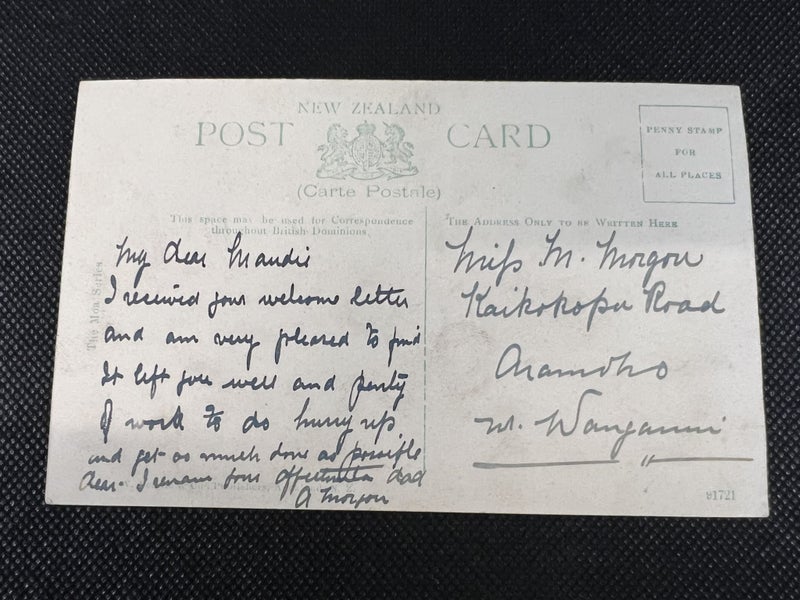 NEW ZEALAND
POST CARD
(Carte Postale)
PENNY STAMP
FOR
ALL PLACES
This space may be used for Correspondence
throughout British Dominions.
THE ADDRESS ONLY TO BE WRITTEN HERE
The Moa Series
My dear Maudie
I received your welcome letter
and am very pleased to find
It left you well and plenty
of work to do hurry up
and get as much done as possible
dear. I remain your affectunate dad
A Morgan
Miss M. Morgan
Kaikokopu Road
Aramoho
W. Wanganui
Publishers,
91721